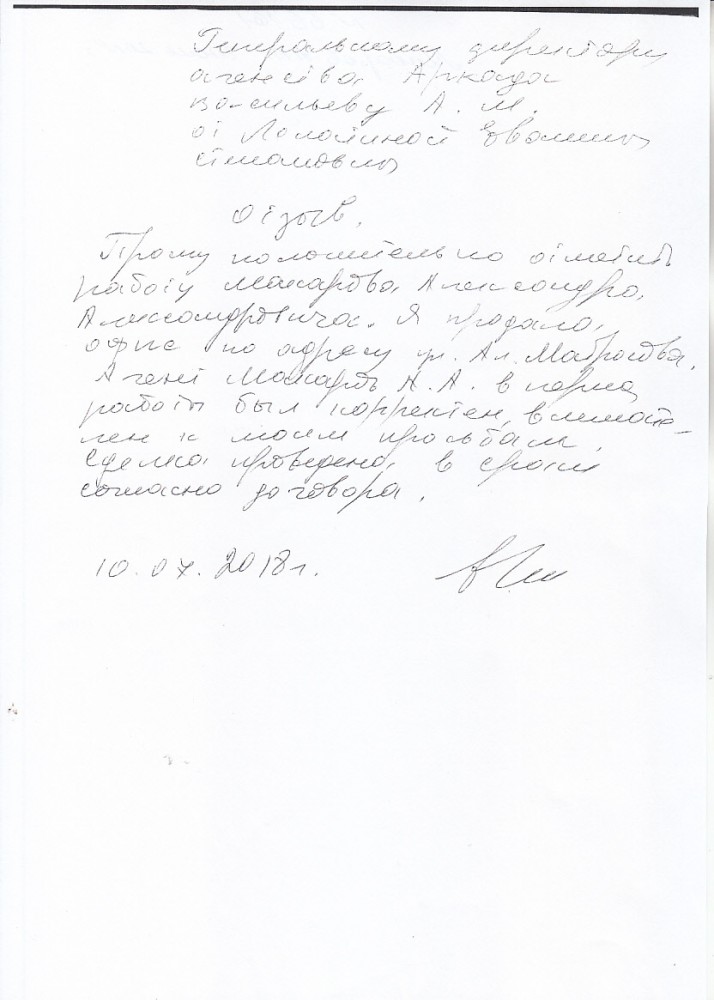 Генеральному директору
агенства Аркада
Васильеву А. М.
от
Отзыв.
Прошу положительно отметить
работу Макарова Александра
Александровича. Я продала
офис по адресу ул. Ал. Матросова.
Агент Макаров А. А. в период
работы был корректен, внимате-
лен к моим просьбам.
Сделка проведена в сроки
согласно договора.
10.07.2018г.